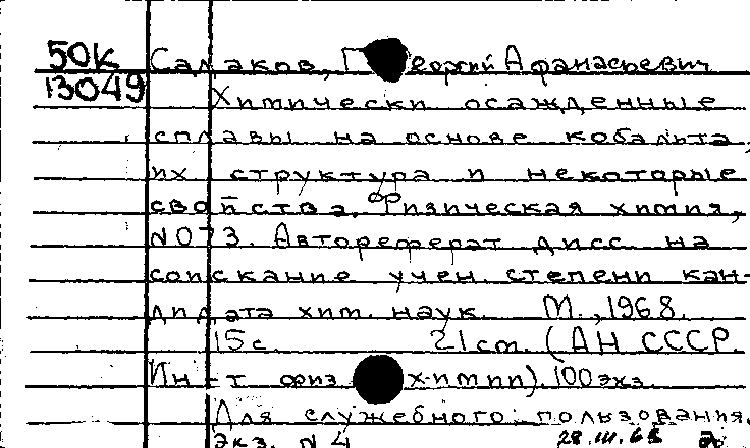 50К Садаков, Георгий Афанасьевич
13049
Химически осажденные
сплавы на основе кобальта,
их структура и некоторые
свойства. Физическая химия,
N073. Автореферат дисс на
соискание учен. степени кан-
дидата хим. наук. М., 1968.
15с 21 см. (АН СССР.
Ин-т физ химии). 100 экз.
Для служебного пользования,
экз. N4 28.III.68